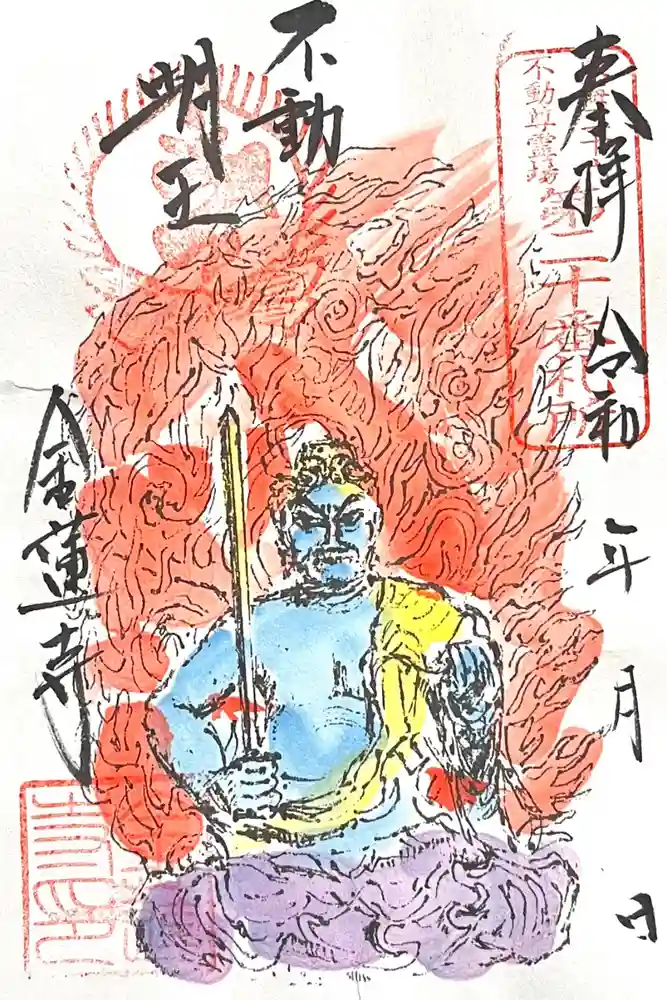 奉拝
令和 年 月 日
不動尊霊場第二十番札所
不動
明王
金蓮寺